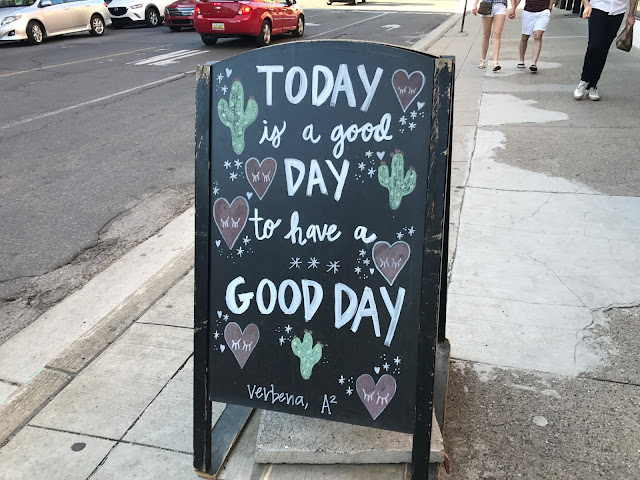 TODAY
is a good
DAY
to have a
GOOD DAY
verbena, A²